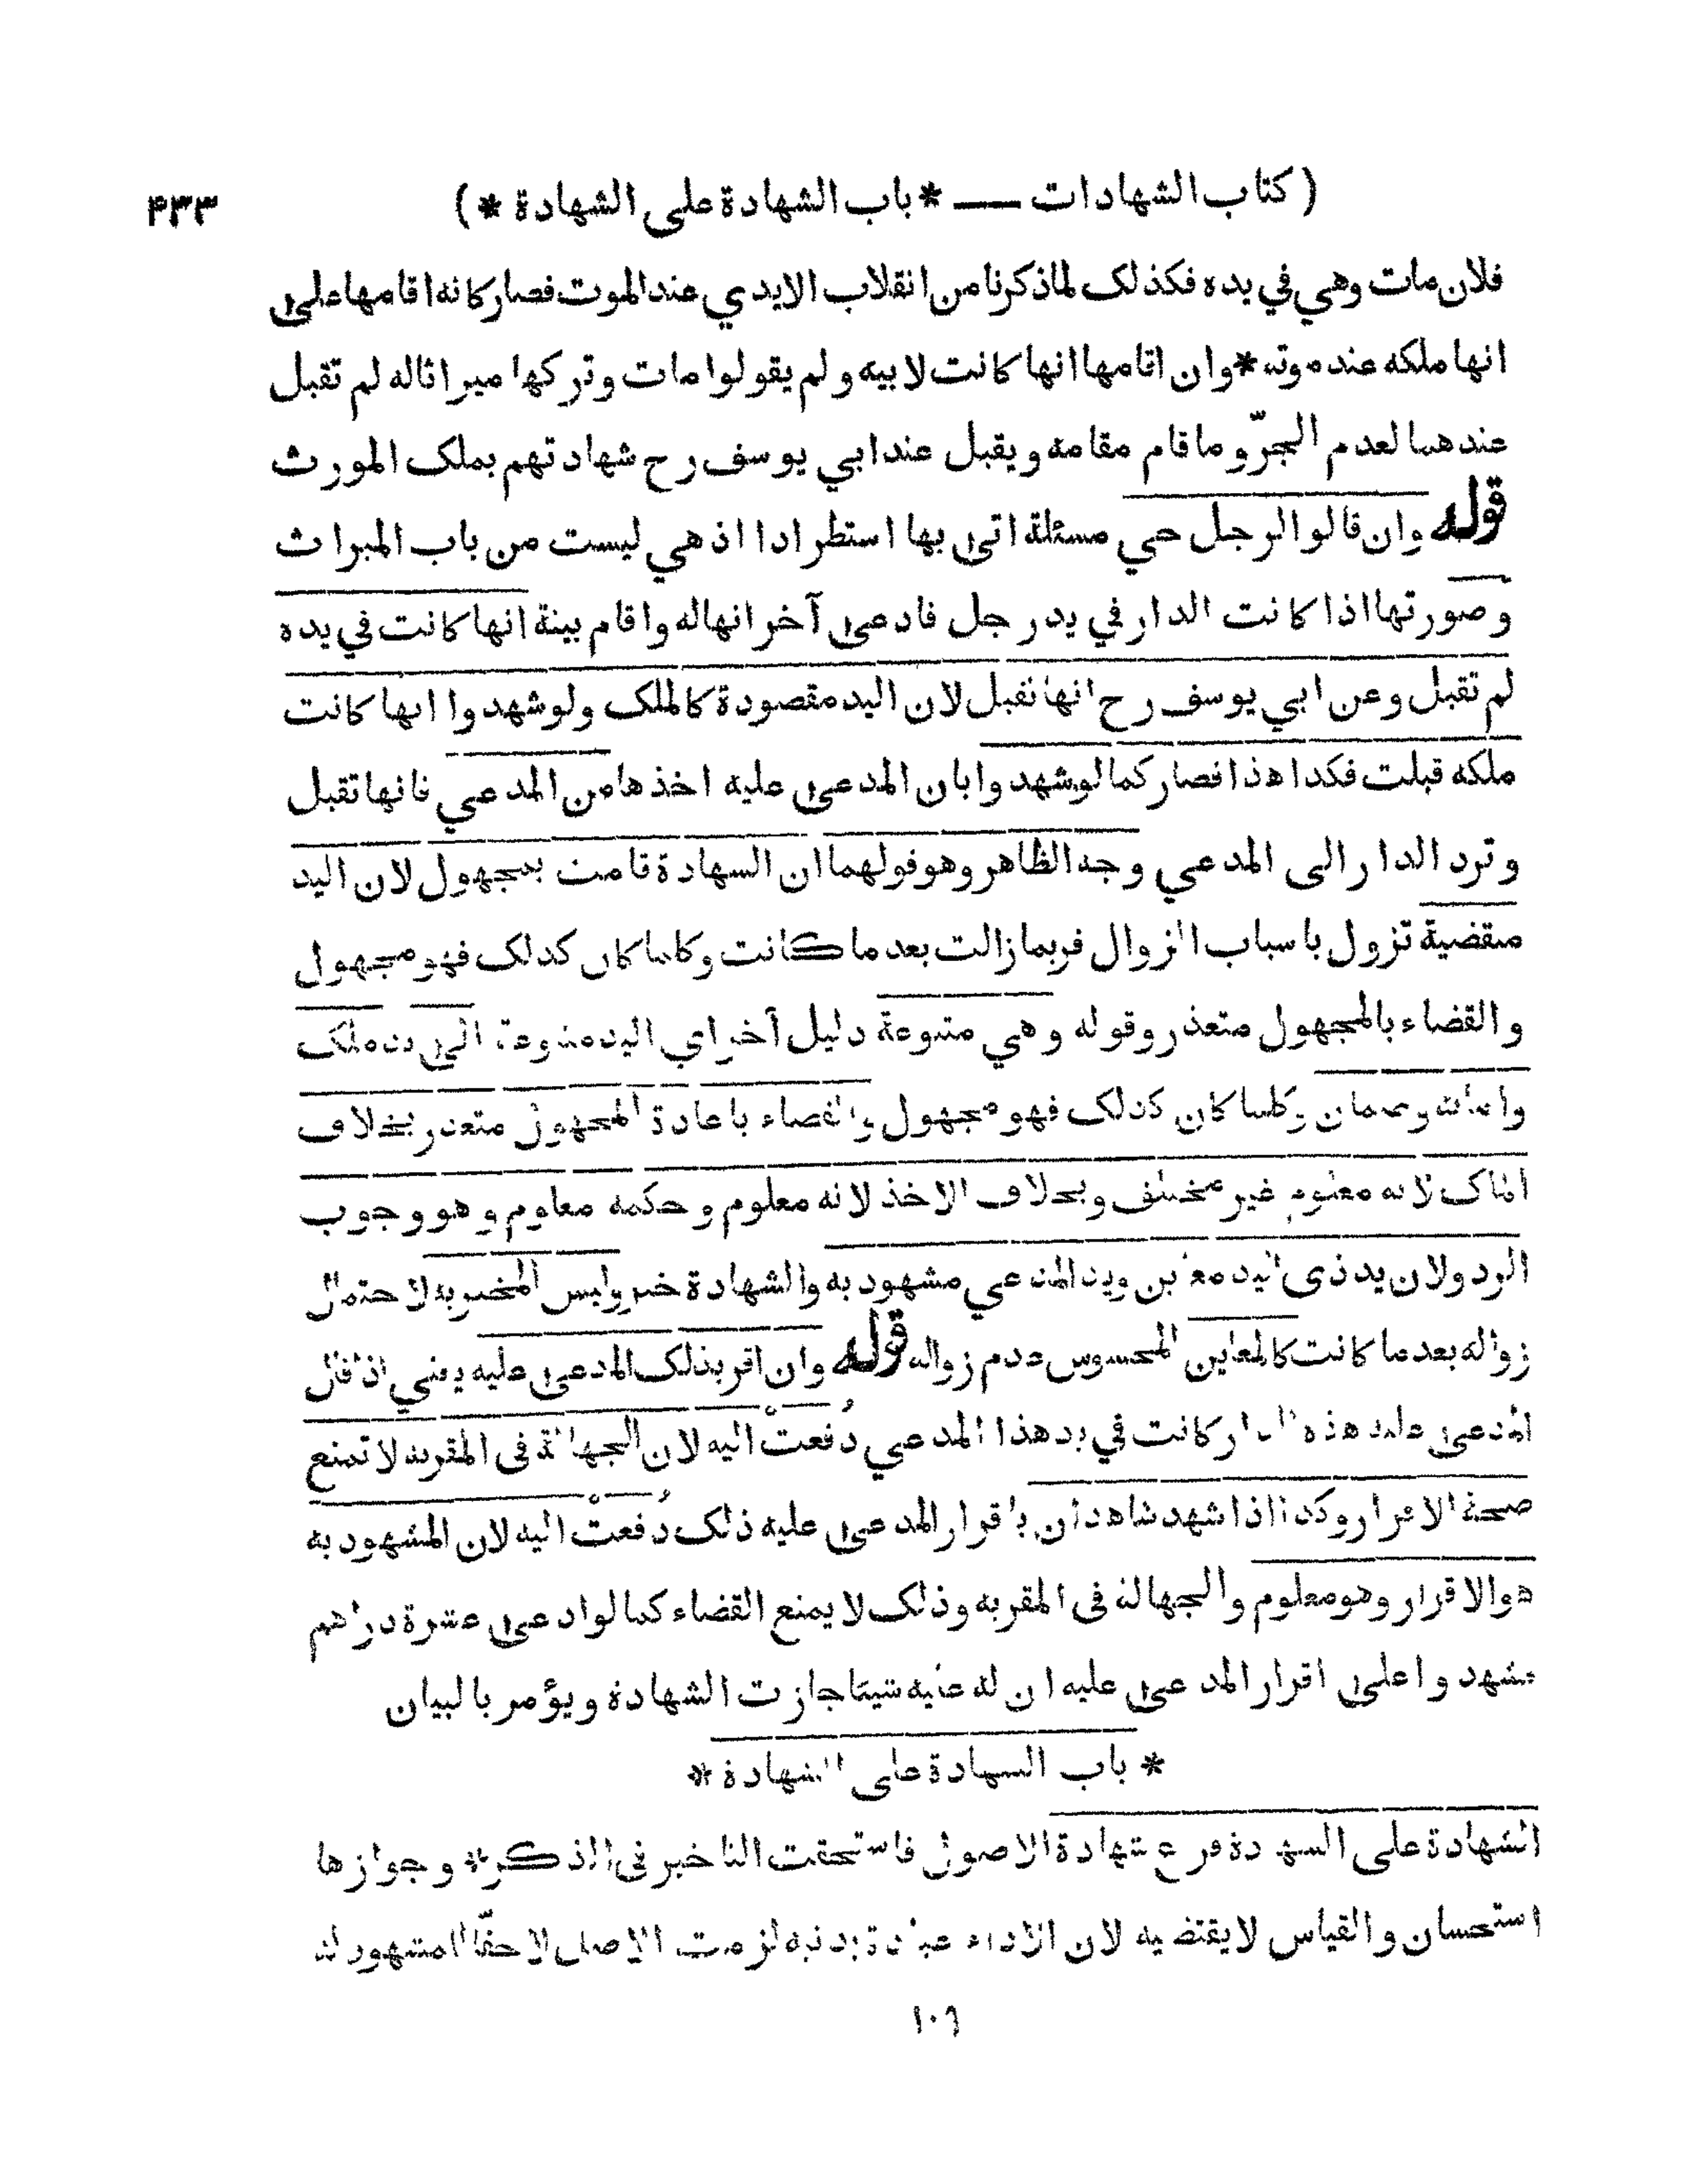 ( كتاب الشهادات — * باب الشهادة على الشهادة * ) ۴۳۳
فلان مات وهي في يده فكذلك لماذكرنا من انقلاب الايدي عند الموت فصار كانه اقامها على
انها ملكه عند موته * وان اقامها انها كانت لابيه ولم يقولوا مات وتركها ميراثاله لم تقبل
عندهما لعدم الجرّ وما قام مقامه ويقبل عند ابي يوسف رح شهادتهم بملك المورث
قوله وان قالوا لرجل حي مسئلة اتى بها استطرادا اذ هي ليست من باب الميراث
وصورتها اذا كانت الدار في يد رجل فادعى آخر انهاله واقام بينة انها كانت في يده
لم تقبل وعن ابي يوسف رح انها تقبل لان اليد مقصودة كالملك ولو شهدوا انها كانت
ملكه قبلت فكذا هذا فصار كمالو شهدوا بان المدعى عليه اخذها من المدعي فانها تقبل
وترد الدار الى المدعي وجه الظاهر وهو قولهما ان الشهادة قامت بمجهول لان اليد
منقضية تزول باسباب الزوال فربما زالت بعد ما كانت وكلما كان كذلك فهو مجهول
والقضاء بالمجهول متعذر وقوله وهي متنوعة دليل آخر اي اليد متنوعة الى يد ملك
وامانة وضمان وكلما كان كذلك فهو مجهول والقضاء باعادة المجهول متعذر بخلاف
الملك لانه معلوم غير مختلف وبخلاف الاخذ لانه معلوم وحكمه معلوم وهو وجوب
الرد ولان يد ذى اليد معاين ويد المدعي مشهود به والشهادة خبر وليس المخبر به لاحتمال
زواله بعد ما كانت كالمعاين المحسوس عدم زواله قوله وان اقر بذلك المدعى عليه يعني اذا قال
المدعى عليه هذه الدار كانت في يد هذا المدعي دُفعتْ اليه لان الجهالة فى المقر به لا تمنع
صحة الاقرار وكذا اذا شهد شاهدان باقرار المدعى عليه ذلك دُفعتْ اليه لان المشهود به
هو الاقرار وهو معلوم والجهالة فى المقر به وذلك لا يمنع القضاء كما لو ادعى عشرة دراهم
فشهدوا على اقرار المدعى عليه ان له عليه شيئا جازت الشهادة ويؤمر بالبيان
* باب الشهادة على الشهادة *
الشهادة على الشهادة فرع شهادة الاصول فاستحقت التاخير فى الذكر * وجوازها
استحسان والقياس لا يقتضيه لان الاداء عبادة بدنية لزمت الاصل لا حقّا للمشهود له
١٠٩